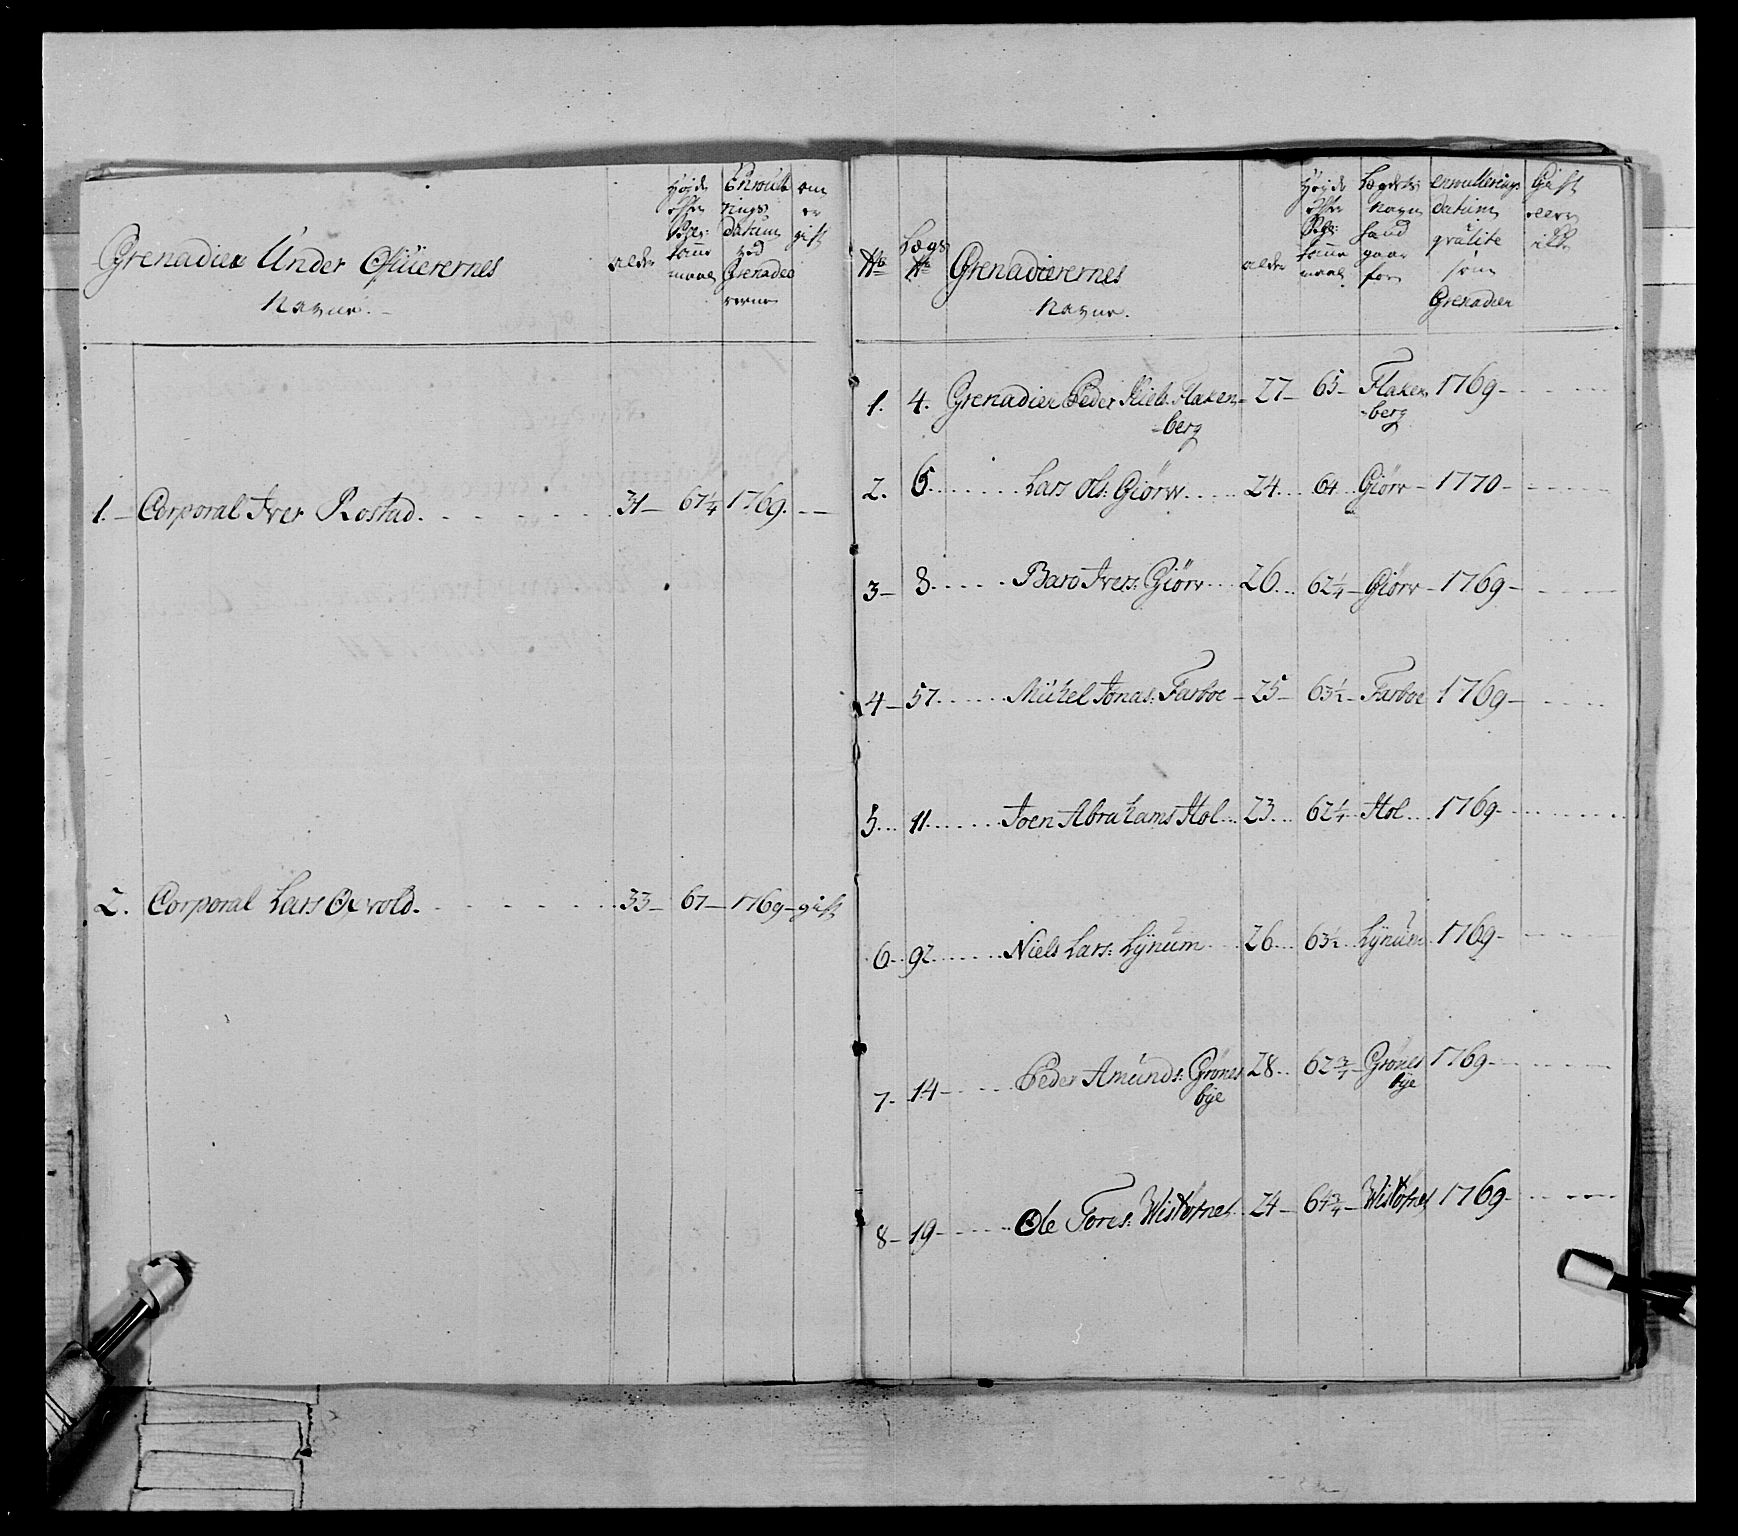 Grenadier Under Officierernes
Navne.
alder
Høyde
efter
tomme
maal
Enroul
rings
datum
ved
Grenadee
rerne
om
er
gift
1. Corporal Iver Rostad. 31 67 1/4 1769.
2. Corporal Lars Qvold. 33 67 1769 gift
No
Lægs
No
Grenadierernes
Navne.
alder
Høyde
efter
tomme
maal
Lægdets
Navn
hand
gaar
for
enroullerings
datum
som
Grenadier
Gift
eller
ikke
1. 4. Grenadier Peder Niels: Flaken 27 65 Flaken 1769
-berg -berg
2. 6 Lars Ols: Giörv 24 64 Giörv 1770
3 8 Baro Ivers: Giörv 26 62 1/4 Giörv 1769
4 57 Mickel Jonas: Farboe 25 63 1/2 Farboe 1769
5 11 Joen Abrahams Hol 23 62 1/4 Hol 1769
6 92 Niels Lars: Lÿnum 26 63 1/2 Lÿnum 1769
7. 14 Peder Amunds: Grönes 28 62 3/4 Grönes 1769
bÿe bÿe
8 19 Ole Tores: Wistesnes 24 64 3/4 Wistesnes 1769